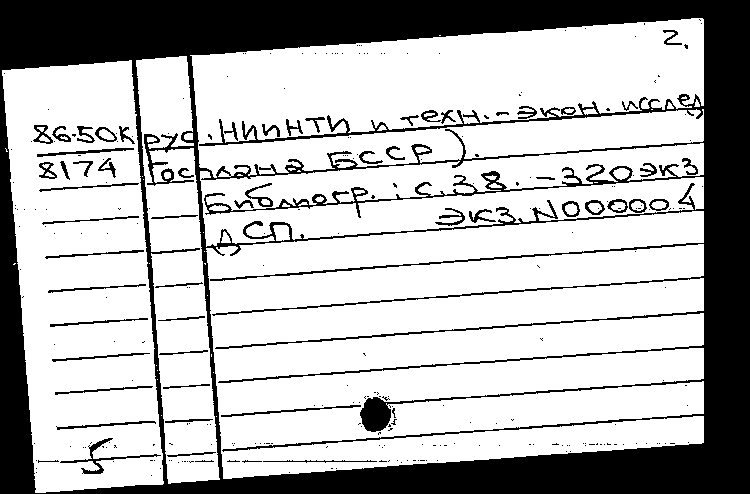 2.
86-50К рус. НИИНТИ и техн.-экон. исслед
8174 Госплана БССР).
Библиогр.: с.38. -320экз
ДСП. экз.N000004
5